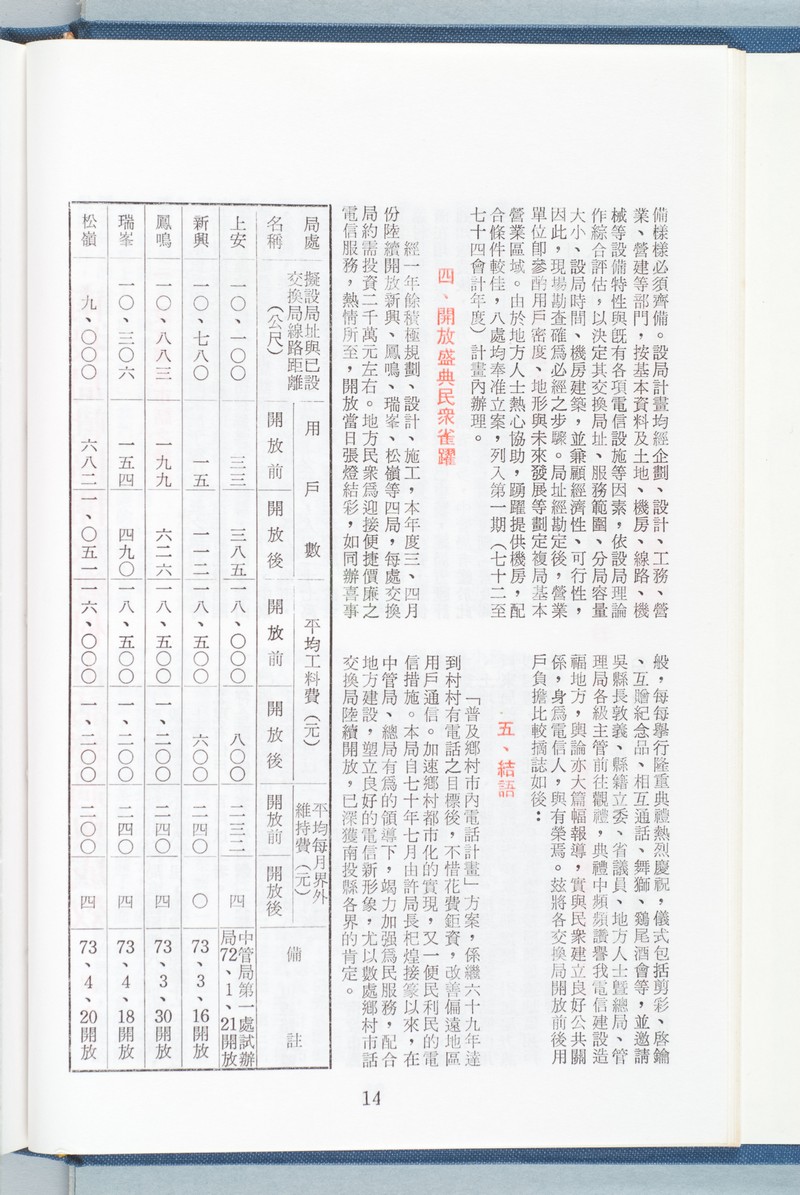 備樣樣必須齊備。設局計畫均經企劃、設計、工務、營
業、營建等部門，按基本資料及土地、機房、線路、機
械等設備特性與既有各項電信設施等因素，依設局理論
作綜合評估，以決定其交換局址、服務範圍、分局容量
大小、設局時間、機房建築，並兼顧經濟性、可行性，
因此，現場勘查確爲必經之步驟。局址經勘定後，營業
單位卽參酌用戶密度、地形與未來發展等劃定複局基本
營業區域。由於地方人士熱心協助，踴躍提供機房，配
合條件較佳，八處均奉准立案，列入第一期（七十二至
七十四會計年度）計畫內辦理。
四、開放盛典民衆雀躍
經一年餘積極規劃、設計、施工，本年度三、四月
份陸續開放新興、鳳鳴、瑞峯、松嶺等四局，每處交換
局約需投資二千萬元左右。地方民衆爲迎接便捷價廉之
電信服務，熱情所至，開放當日張燈結彩，如同辦喜事
般，每每舉行隆重典禮熱烈慶祝，儀式包括剪彩、啓鑰
、互贈紀念品、相互通話、舞獅、鷄尾酒會等，並邀請
吳縣長敦義、縣籍立委、省議員、地方人士暨總局、管
理局各級主管前往觀禮，典禮中頻頻讚譽我電信建設造
福地方，輿論亦大篇幅報導，實與民衆建立良好公共關
係，身爲電信人，與有榮焉。茲將各交換局開放前後用
戶負擔比較摘誌如後：
五、結語
「普及鄉村市內電話計畫」方案，係繼六十九年達
到村村有電話之目標後，不惜花費鉅資，改善偏遠地區
用戶通信。加速鄉村都市化的實現，又一便民利民的電
信措施。本局自七十年七月由許局長杞煌接篆以來，在
中管局、總局有爲的領導下，竭力加强爲民服務，配合
地方建設，塑立良好的電信新形象，尤以數處鄉村市話
交換局陸續開放，已深獲南投縣各界的肯定。
局處名稱
擬設局址與已設交換局線路距離（公尺）
用戶數
開放前
開放後
平均工料費（元）
開放前
開放後
平均每月界外維持費（元）
開放前
開放後
備註
上安
一〇、一〇〇
三三
三八五
一八、〇〇〇
八〇〇
二三二
四
中管局第一處試辦局72、1、21開放
新興
一〇、七八〇
一五
一一二
一八、五〇〇
六〇〇
二四〇
〇
73、3、16開放
鳳鳴
一〇、八八三
一九九
六二六
一八、五〇〇
一、二〇〇
二四〇
四
73、3、30開放
瑞峯
一〇、三〇六
一五四
四九〇
一八、五〇〇
一、二〇〇
二四〇
四
73、4、18開放
松嶺
九、〇〇〇
六八二
一、〇五一
一六、〇〇〇
一、二〇〇
二〇〇
四
73、4、20開放
14